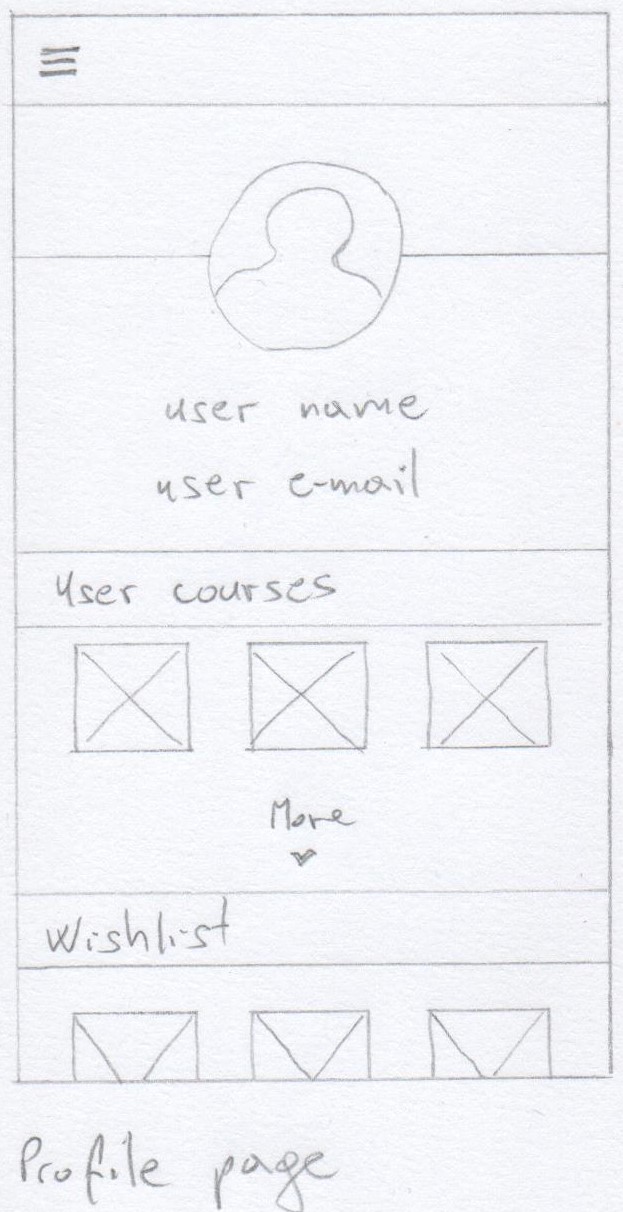 user name
user e-mail
User courses
More
Wishlist
Profile page